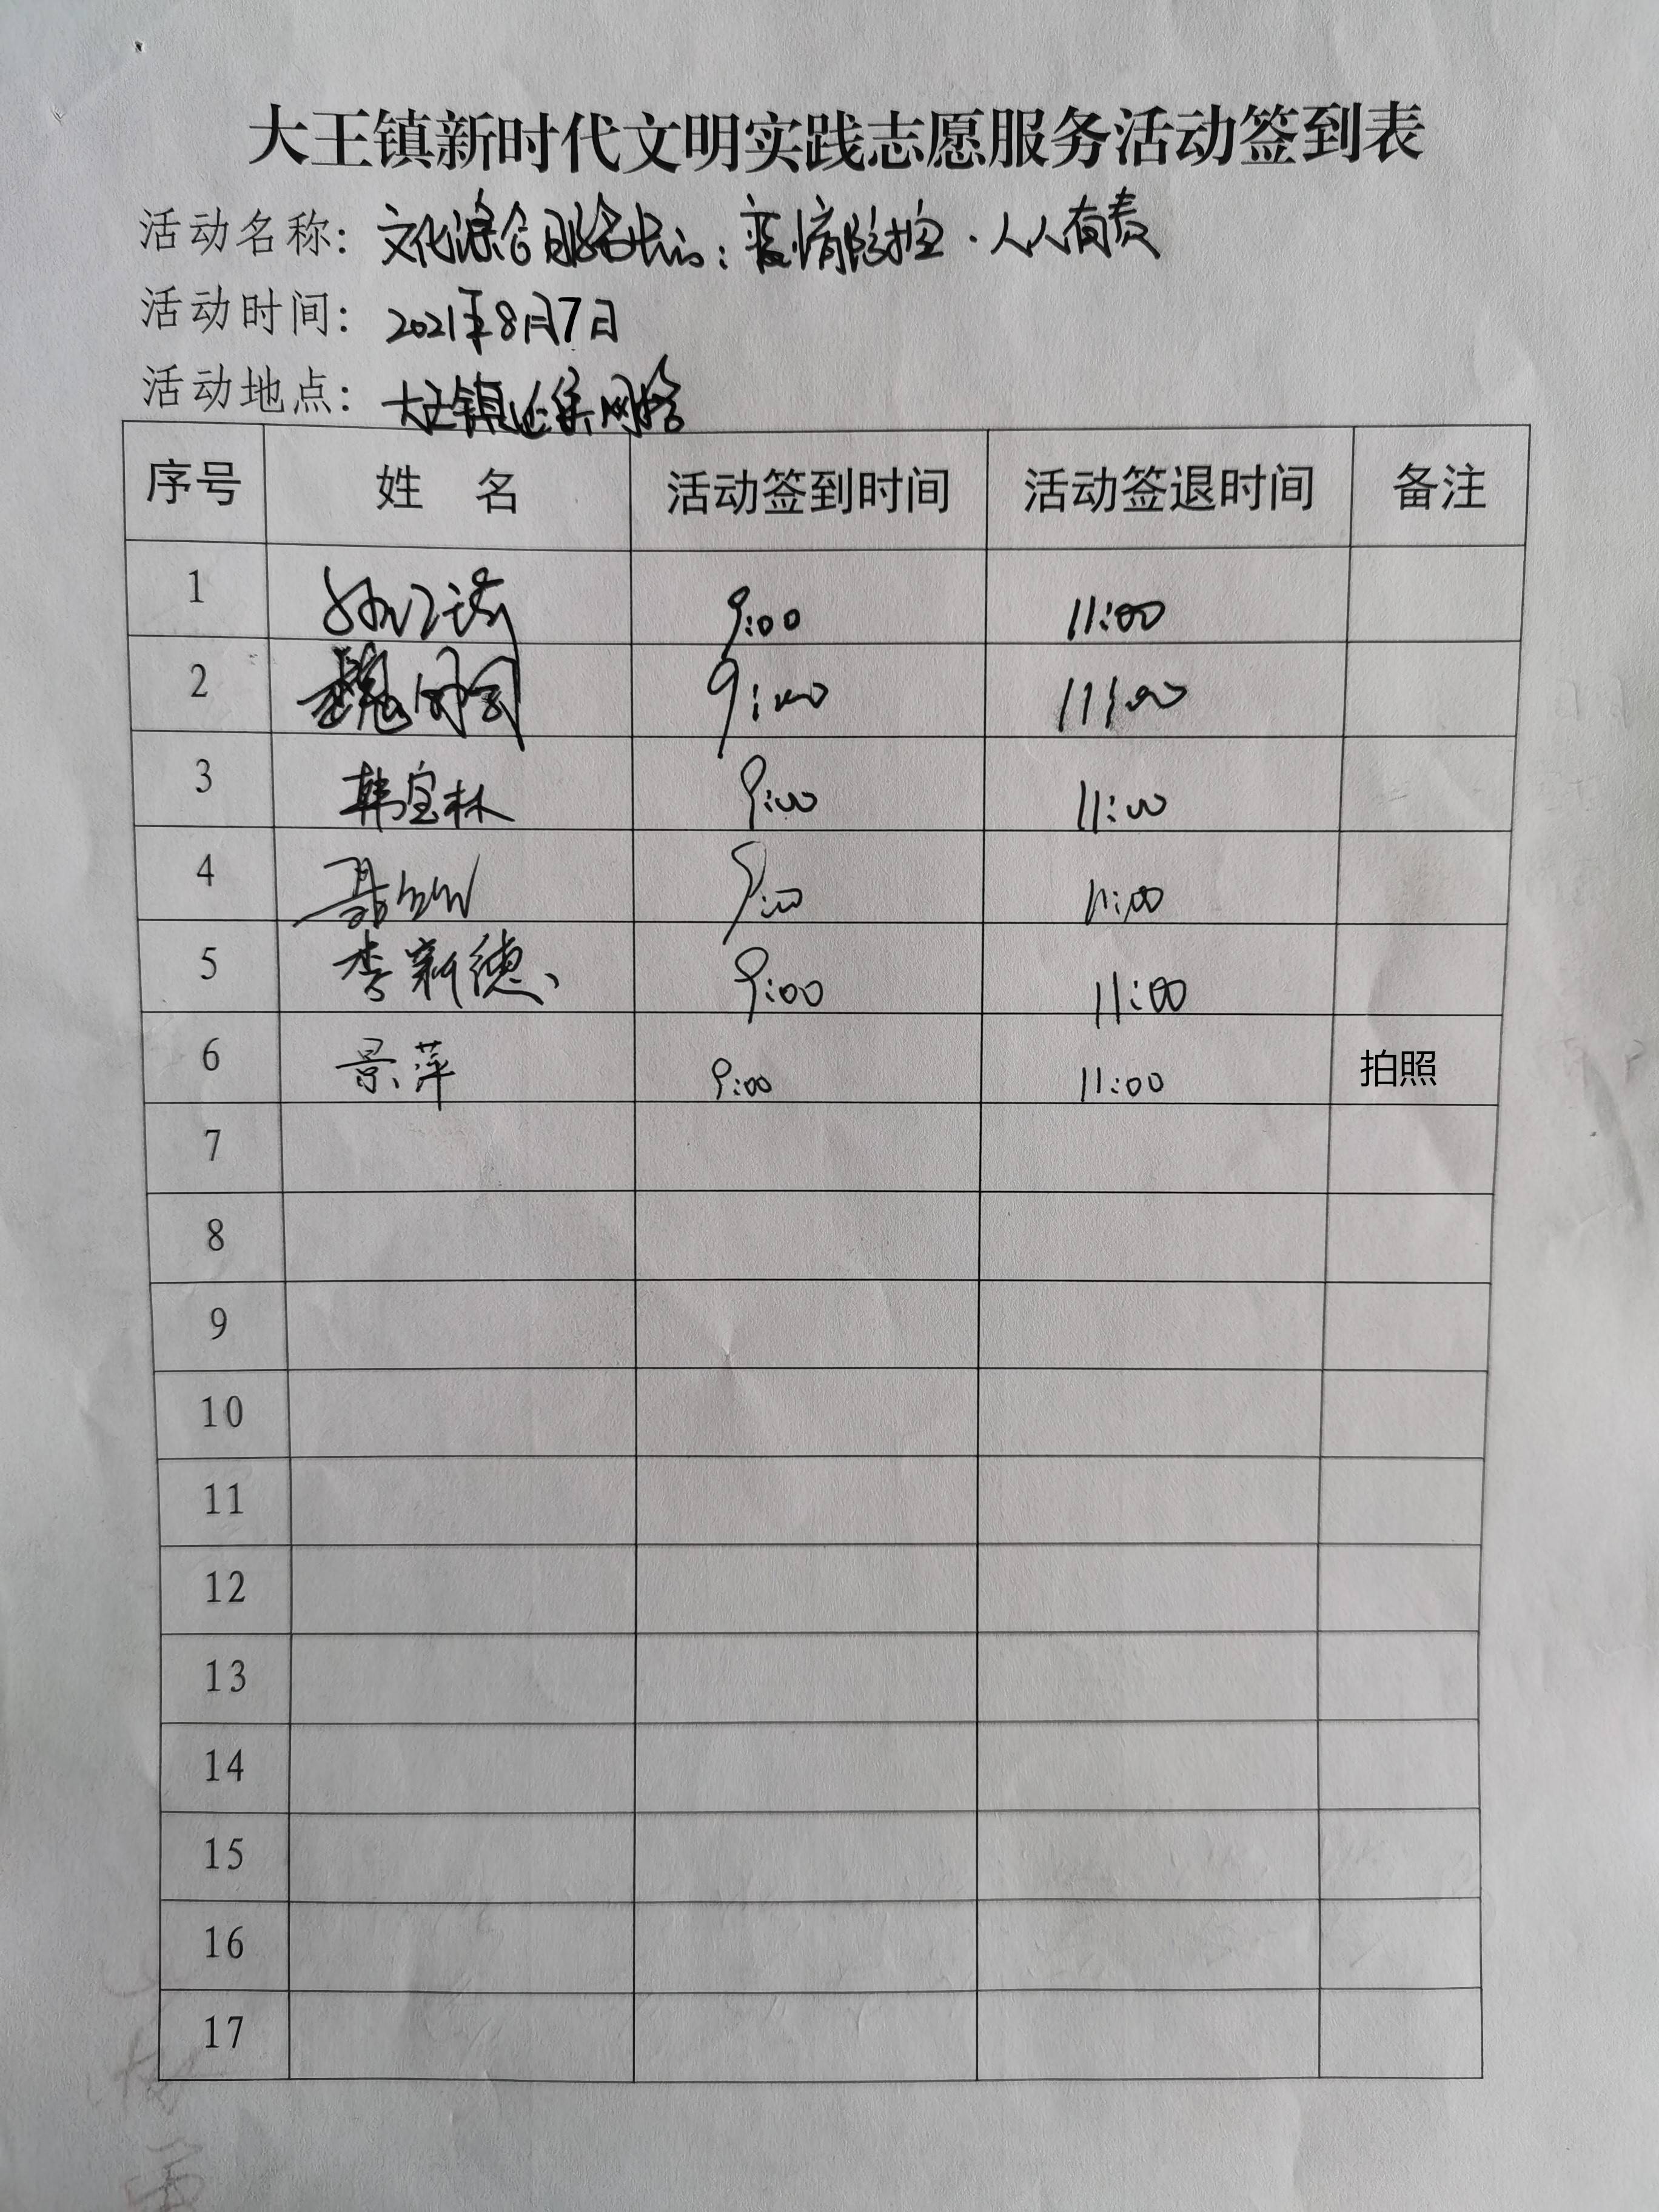 大王镇新时代文明实践志愿服务活动签到表
活动名称：文化综合服务长：疫情防控·人人有责
活动时间：2021年8月7日
活动地点：大王镇延集网格
序号 姓 名 活动签到时间 活动签退时间 备注
1 9:00 11:00
2 魏 9:00 11:00
3 韩宝林 9:00 11:00
4 聂 9:00 11:00
5 李新德 9:00 11:00
6 景萍 9:00 11:00 拍照
7
8
9
10
11
12
13
14
15
16
17